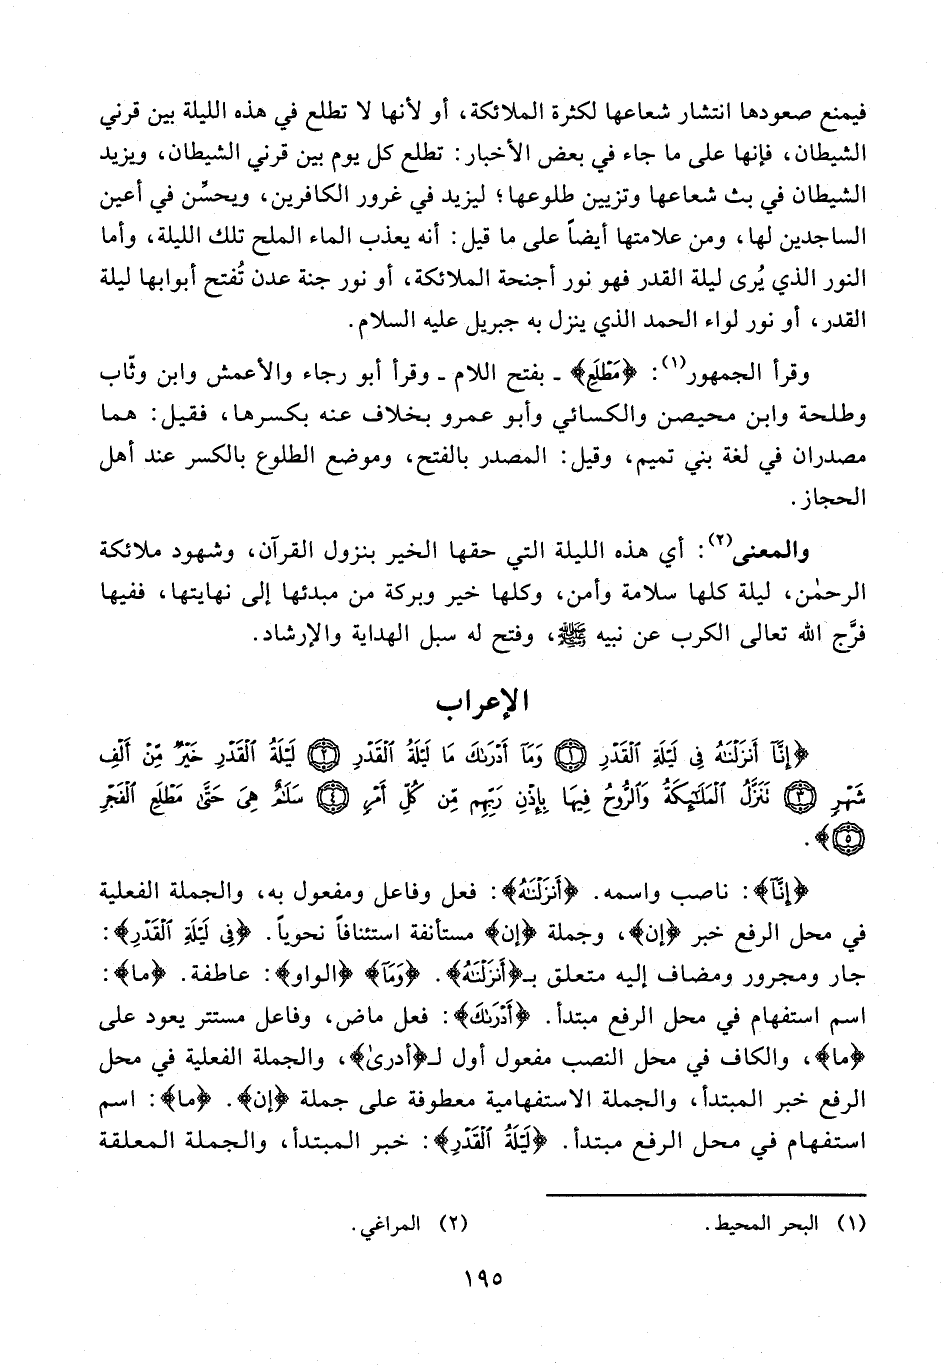 فيمنع صعودها انتشار شعاعها لكثرة الملائكة، أو لأنها لا تطلع في هذه الليلة بين قرني
الشيطان، فإنها على ما جاء في بعض الأخبار: تطلع كل يوم بين قرني الشيطان، ويزيد
الشيطان في بث شعاعها وتزيين طلوعها؛ ليزيد في غرور الكافرين، ويحسِّن في أعين
الساجدين لها، ومن علامتها أيضاً على ما قيل: أنه يعذب الماء الملح تلك الليلة، وأما
النور الذي يُرى ليلة القدر فهو نور أجنحة الملائكة، أو نور جنة عدن تُفتح أبوابها ليلة
القدر، أو نور لواء الحمد الذي ينزل به جبريل عليه السلام.
وقرأ الجمهور(١): ﴿مَطْلَعِ﴾ ـ بفتح اللام ـ وقرأ أبو رجاء والأعمش وابن وثّاب
وطلحة وابن محيصن والكسائي وأبو عمرو بخلاف عنه بكسرها، فقيل: هما
مصدران في لغة بني تميم، وقيل: المصدر بالفتح، وموضع الطلوع بالكسر عند أهل
الحجاز.
والمعنى(٢): أي هذه الليلة التي حقها الخير بنزول القرآن، وشهود ملائكة
الرحمٰن، ليلة كلها سلامة وأمن، وكلها خير وبركة من مبدئها إلى نهايتها، ففيها
فرَّج الله تعالى الكرب عن نبيه ﷺ، وفتح له سبل الهداية والإرشاد.
الإعراب
﴿إِنَّآ أَنزَلْنَٰهُ فِى لَيْلَةِ ٱلْقَدْرِ ١ وَمَآ أَدْرَىٰكَ مَا لَيْلَةُ ٱلْقَدْرِ ٢ لَيْلَةُ ٱلْقَدْرِ خَيْرٌ مِّنْ أَلْفِ
شَهْرٍ ٣ تَنَزَّلُ ٱلْمَلَٰٓئِكَةُ وَٱلرُّوحُ فِيهَا بِإِذْنِ رَبِّهِم مِّن كُلِّ أَمْرٍ ٤ سَلَٰمٌ هِىَ حَتَّىٰ مَطْلَعِ ٱلْفَجْرِ
٥﴾.
﴿إِنَّآ﴾: ناصب واسمه. ﴿أَنزَلْنَٰهُ﴾: فعل وفاعل ومفعول به، والجملة الفعلية
في محل الرفع خبر ﴿إن﴾، وجملة ﴿إن﴾ مستأنفة استئنافاً نحوياً. ﴿فِى لَيْلَةِ ٱلْقَدْرِ﴾:
جار ومجرور ومضاف إليه متعلق بـ﴿أَنزَلْنَٰهُ﴾. ﴿وَمَآ﴾ ﴿الواو﴾: عاطفة. ﴿ما﴾:
اسم استفهام في محل الرفع مبتدأ. ﴿أَدْرَىٰكَ﴾: فعل ماض، وفاعل مستتر يعود على
﴿ما﴾، والكاف في محل النصب مفعول أول لـ﴿أدرىٰ﴾، والجملة الفعلية في محل
الرفع خبر المبتدأ، والجملة الاستفهامية معطوفة على جملة ﴿إن﴾. ﴿ما﴾: اسم
استفهام في محل الرفع مبتدأ. ﴿لَيْلَةُ ٱلْقَدْرِ﴾: خبر المبتدأ، والجملة المعلقة
(١) البحر المحيط.
(٢) المراغي.
١٩٥